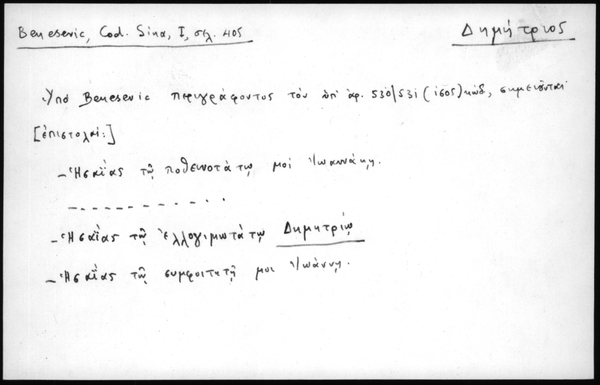 Benesevic, Cod. Sina, I, σελ. 405
Δημήτριος
Ὑπὸ Benesevic περιγράφοντος τὸν ὑπ' ἀρ. 530/531 (1505) κώδ, σημειοῦνται
[ἐπιστολαί:]
- Ἡσαΐας τῷ ποθεινοτάτῳ μοι Ἰωαννάκῃ.
- - - - - - - . . . . .
- Ἡσαΐας τῷ ἐλλογιμωτάτῳ Δημητρίῳ
- Ἡσαΐας τῷ συμφοιτητῇ μοι Ἰωάννῃ.